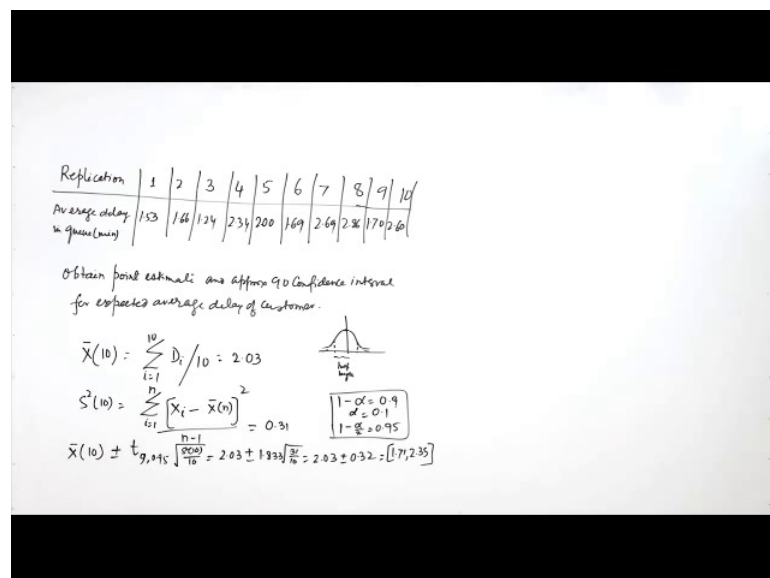 Replication | 1 | 2 | 3 | 4 | 5 | 6 | 7 | 8 | 9 | 10
Average delay in queue (min) | 1.53 | 1.66 | 1.24 | 2.34 | 2.00 | 1.69 | 2.69 | 2.86 | 1.70 | 2.60
Obtain point estimate and approx 90 Confidence interval
for expected average delay of customer.
X̄(10) = Σ_{i=1}^{10} D_i/10 = 2.03
S²(10) = Σ_{i=1}^{n} [X_i - X̄(n)]² / n-1 = 0.31
half
length
1-α = 0.9
α = 0.1
1-α/2 = 0.95
X̄(10) ± t_{9,0.95} √(S²(10)/10) = 2.03 ± 1.833 √(.31/10) = 2.03 ± 0.32 = [1.71, 2.35]